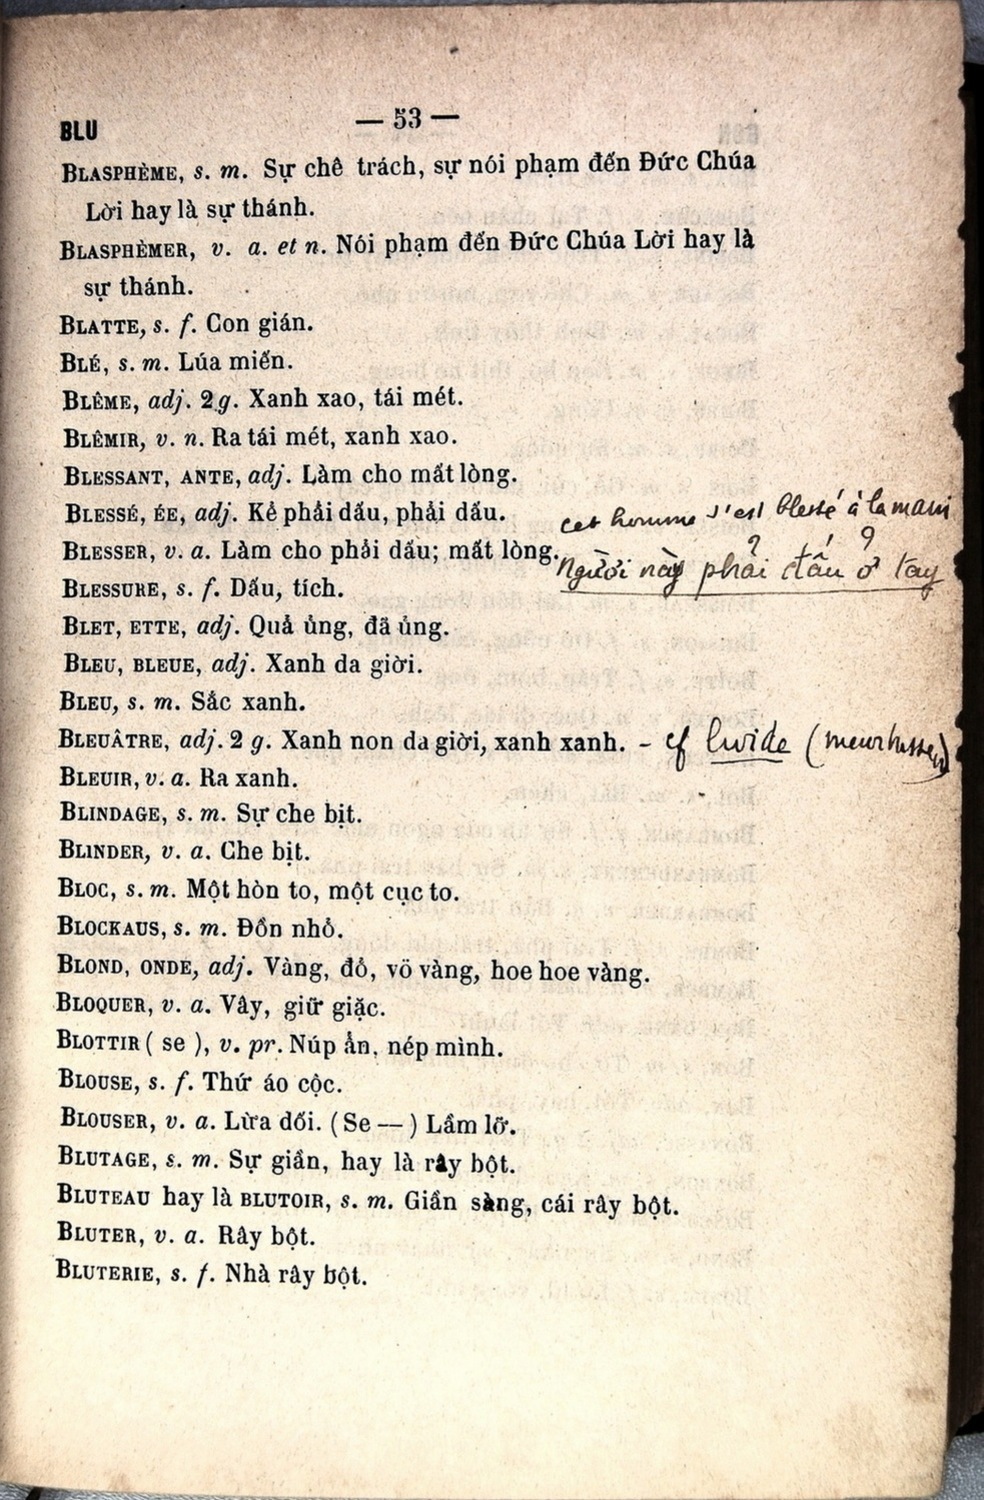 BLU
— 53 —
BLASPHÈME, s. m. Sự chê trách, sự nói phạm đến Đức Chúa
Lời hay là sự thánh.
BLASPHÈMER, v. a. et n. Nói phạm đến Đức Chúa Lời hay là
sự thánh.
BLATTE, s. f. Con gián.
BLÉ, s. m. Lúa miến.
BLÊME, adj. 2 g. Xanh xao, tái mét.
BLÊMIR, v. n. Ra tái mét, xanh xao.
BLESSANT, ANTE, adj. Làm cho mất lòng.
BLESSÉ, ÉE, adj. Kẻ phải dấu, phải dấu.
cet homme s'est blessé à la main
BLESSER, v. a. Làm cho phải dấu; mất lòng.
Người này phải dấu ở tay
BLESSURE, s. f. Dấu, tích.
BLET, ETTE, adj. Quả ủng, đã ủng.
BLEU, BLEUE, adj. Xanh da giời.
BLEU, s. m. Sắc xanh.
BLEUÂTRE, adj. 2 g. Xanh non da giời, xanh xanh. - cf livide (meurtrissure)
BLEUIR, v. a. Ra xanh.
BLINDAGE, s. m. Sự che bịt.
BLINDER, v. a. Che bịt.
BLOC, s. m. Một hòn to, một cục to.
BLOCKAUS, s. m. Đồn nhỏ.
BLOND, ONDE, adj. Vàng, đỏ, vỏ vàng, hoe hoe vàng.
BLOQUER, v. a. Vây, giữ giặc.
BLOTTIR ( se ), v. pr. Núp ẩn, nép mình.
BLOUSE, s. f. Thứ áo cộc.
BLOUSER, v. a. Lừa dối. ( Se — ) Lầm lỡ.
BLUTAGE, s. m. Sự giần, hay là rây bột.
BLUTEAU hay là BLUTOIR, s. m. Giần sàng, cái rây bột.
BLUTER, v. a. Rây bột.
BLUTERIE, s. f. Nhà rây bột.